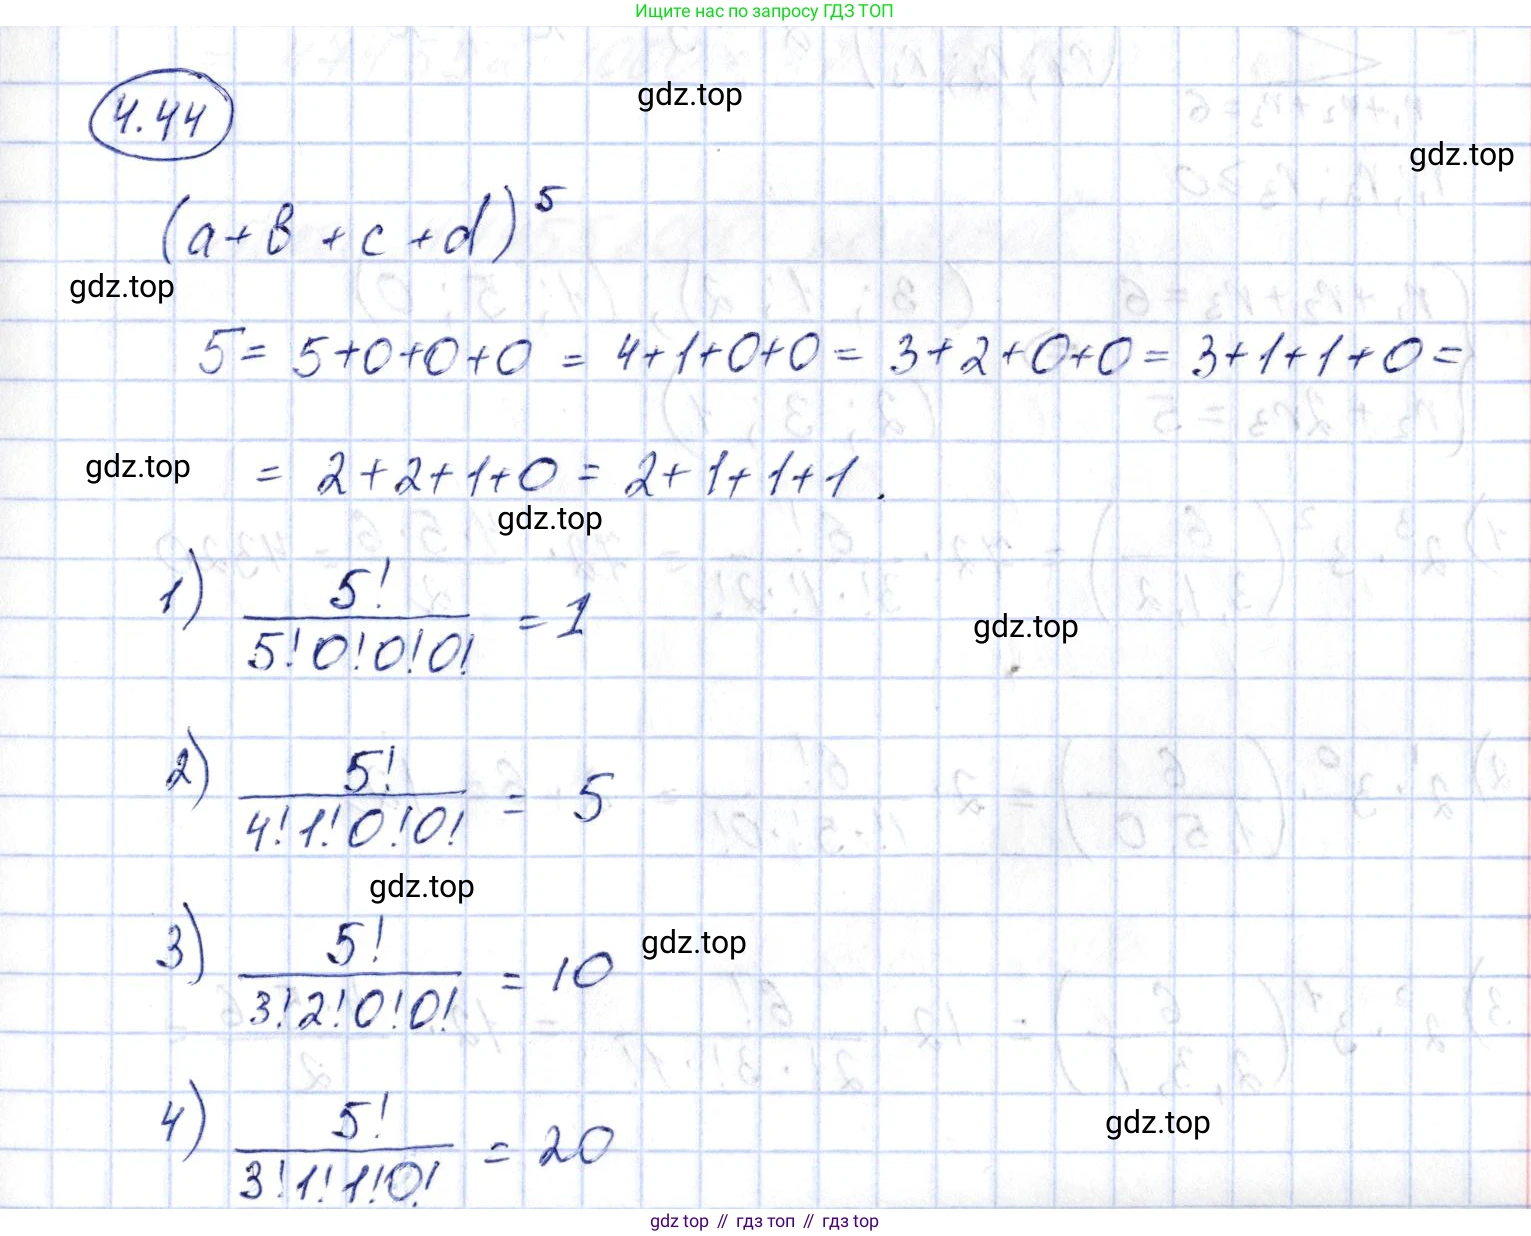 Ищите нас по запросу ГДЗ ТОП
4.44
gdz.top
gdz.top
(a+b+c+d)^5
gdz.top
5 = 5+0+0+0 = 4+1+0+0 = 3+2+0+0 = 3+1+1+0 =
gdz.top
= 2+2+1+0 = 2+1+1+1.
gdz.top
1) 5! / 5!0!0!0! = 1
gdz.top
2) 5! / 4!1!0!0! = 5
gdz.top
3) 5! / 3!2!0!0! = 10
gdz.top
4) 5! / 3!1!1!0! = 20
gdz.top
gdz top // гдз топ // гдз top